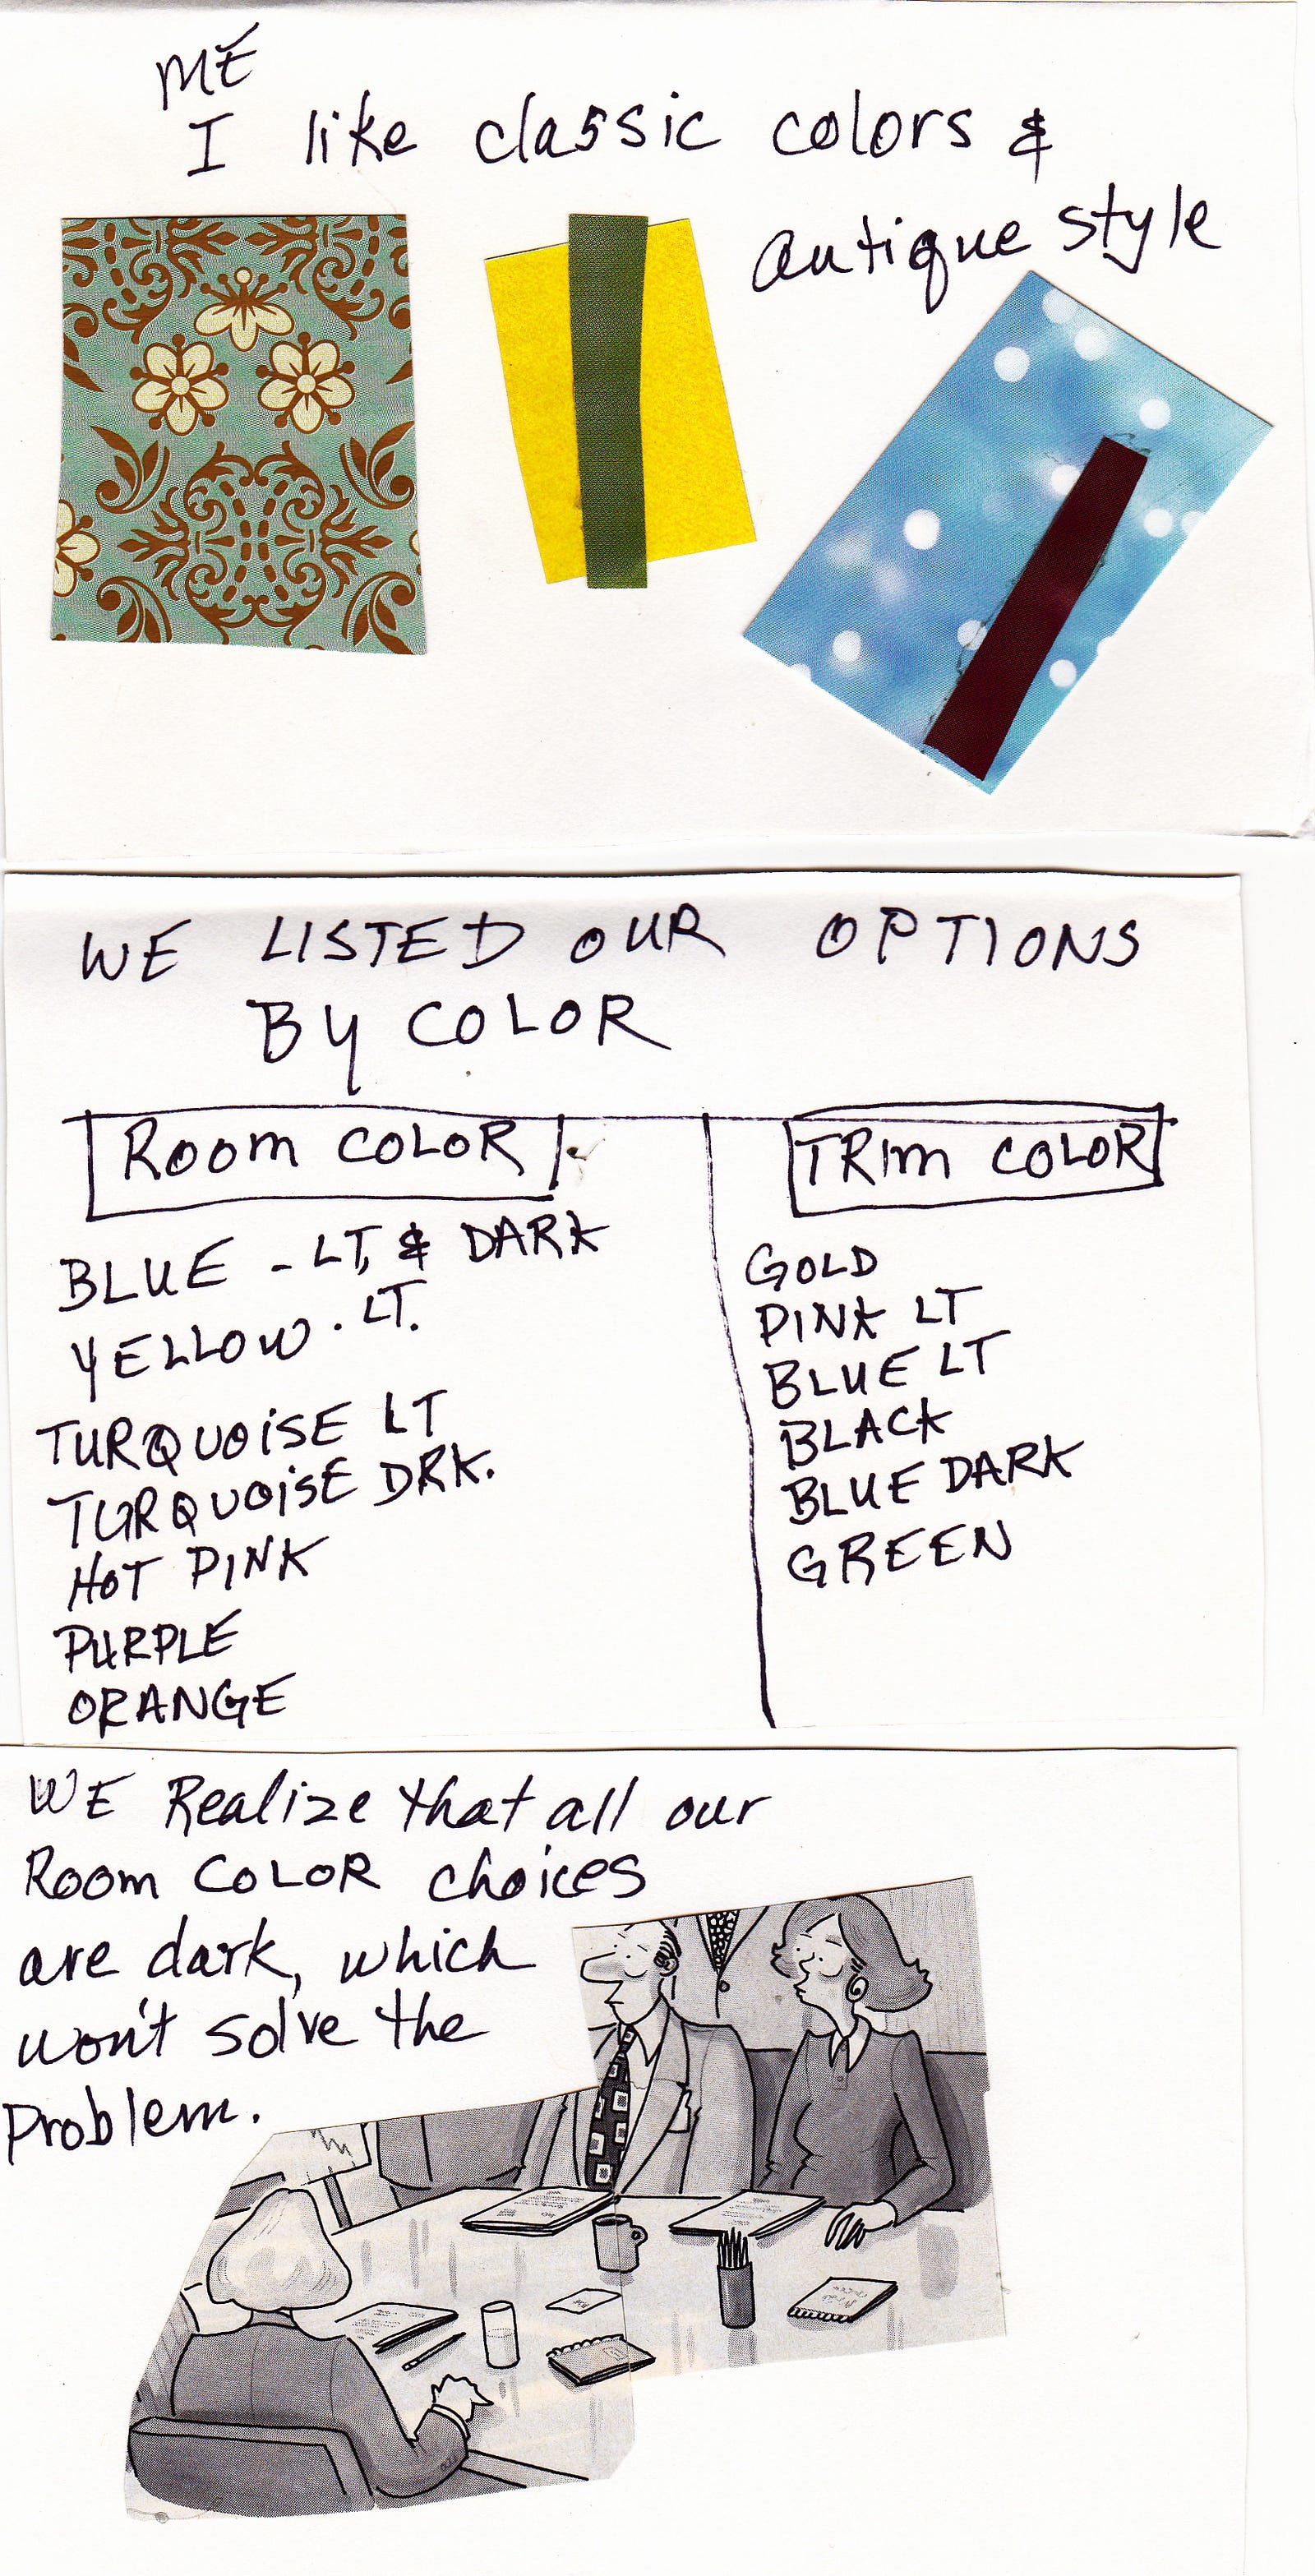 ME
I like classic colors &
antique style
WE LISTED OUR OPTIONS
BY COLOR
ROOM COLOR
BLUE - LT, & DARK
YELLOW . LT.
TURQUOISE LT
TURQUOISE DRK.
HOT PINK
PURPLE
ORANGE
TRIM COLOR
GOLD
PINK LT
BLUE LT
BLACK
BLUE DARK
GREEN
WE Realize that all our
Room COLOR choices
are dark, which
won't solve the
Problem.